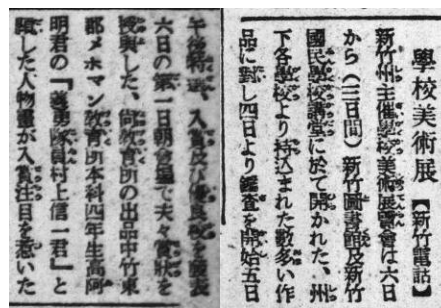 學校美術展【新竹電話】
新竹州主催學校美術展覽會は六日
から(三日間)新竹圖書館及新竹
國民學校講堂に於て開かれた、州
下各學校より持込まれた數多い作
品に對し四日より鑑査を開始五日
午後特選、入賞及び優良校を發表
六日の第一日朝會場で夫々賞狀を
授與した、尚教育所の出品中竹東
郡メホマン教育所本科四年生高阿
君の『義勇隊員村上信一君』と
題した人物畫が入賞注目を惹いた